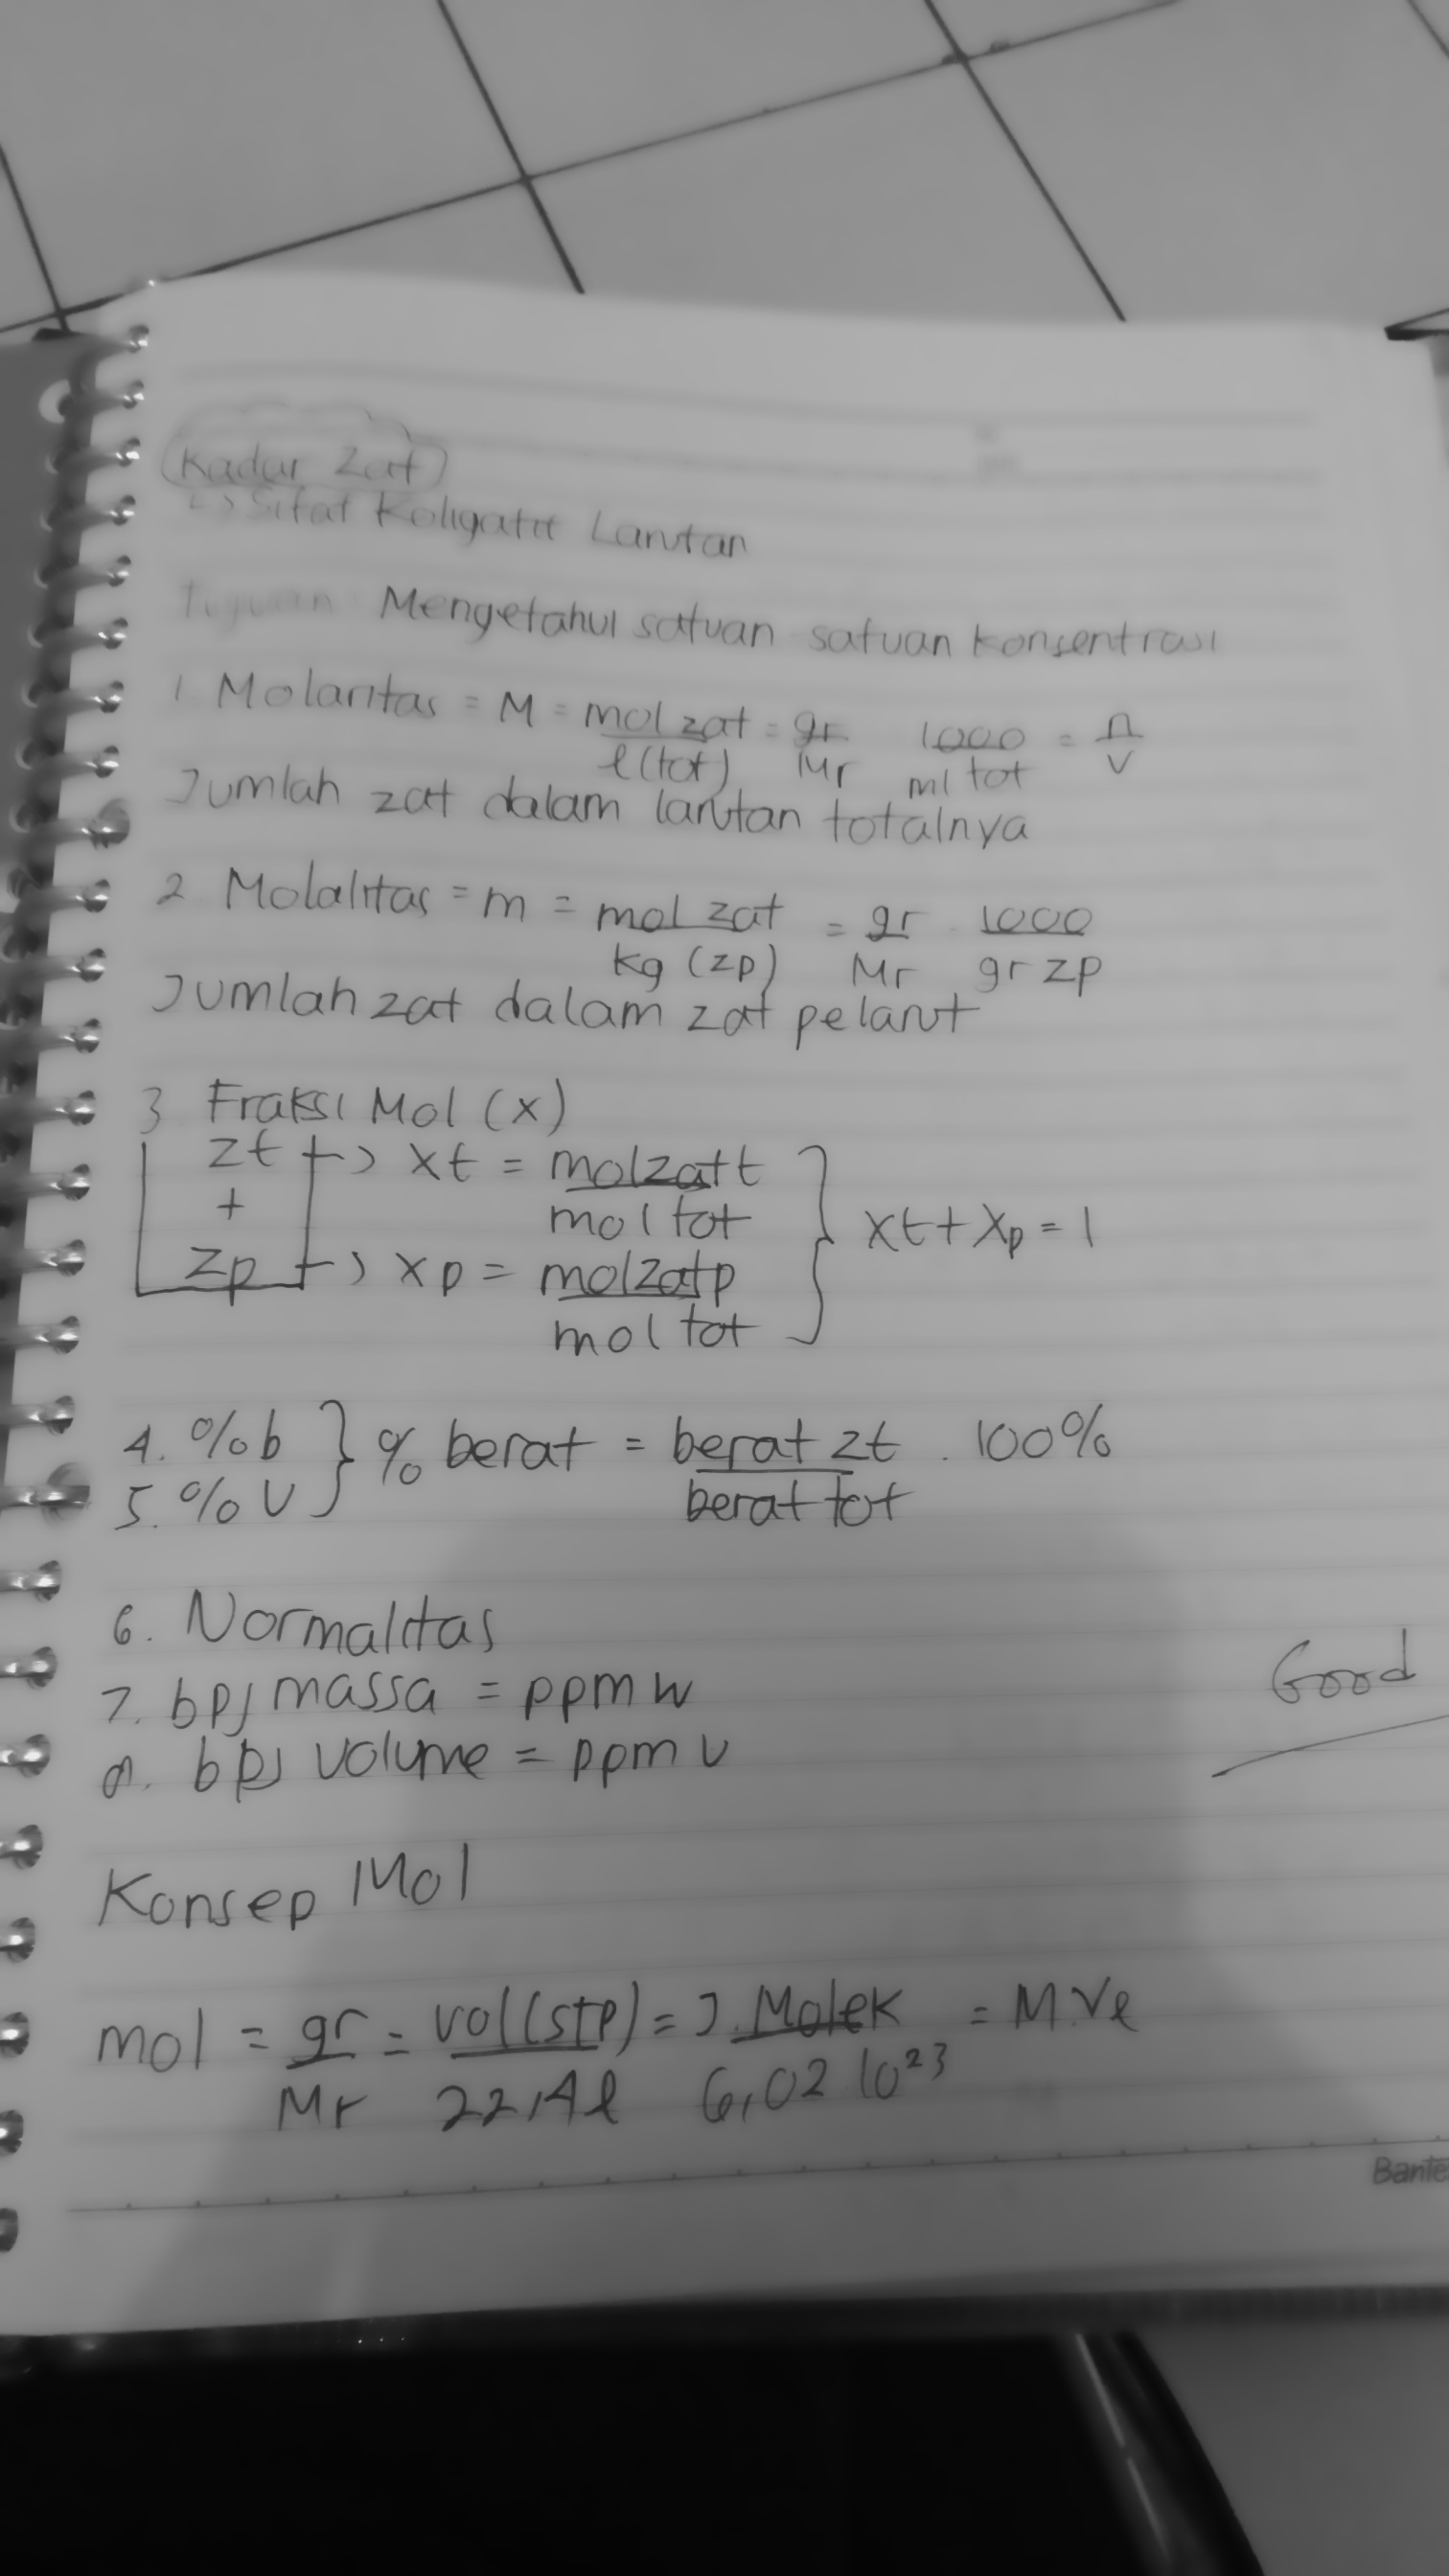 Kadar Zat
↳ Sifat Koligatif Larutan
Tujuan : Mengetahui satuan satuan konsentrasi
1. Molaritas = M = mol zat / l (tot) = gr / Mr 1000 / ml tot = n / v
Jumlah zat dalam larutan totalnya
2. Molalitas = m = mol zat / kg (zp) = gr / Mr . 1000 / gr zp
Jumlah zat dalam zat pelarut
3 Fraksi Mol (x)
zt → xt = mol zat t / mol tot
+
zp → xp = mol zat p / mol tot
} xt + xp = 1
4. %b } % berat = berat zt / berat tot . 100%
5. % V
6. Normalitas
7. bpj massa = ppm w
8. bpj volume = ppm v
Good
Konsep Mol
mol = gr / Mr = vol (stp) / 22,4 l = J. Molek / 6,02 10²³ = M.Vl
Bante